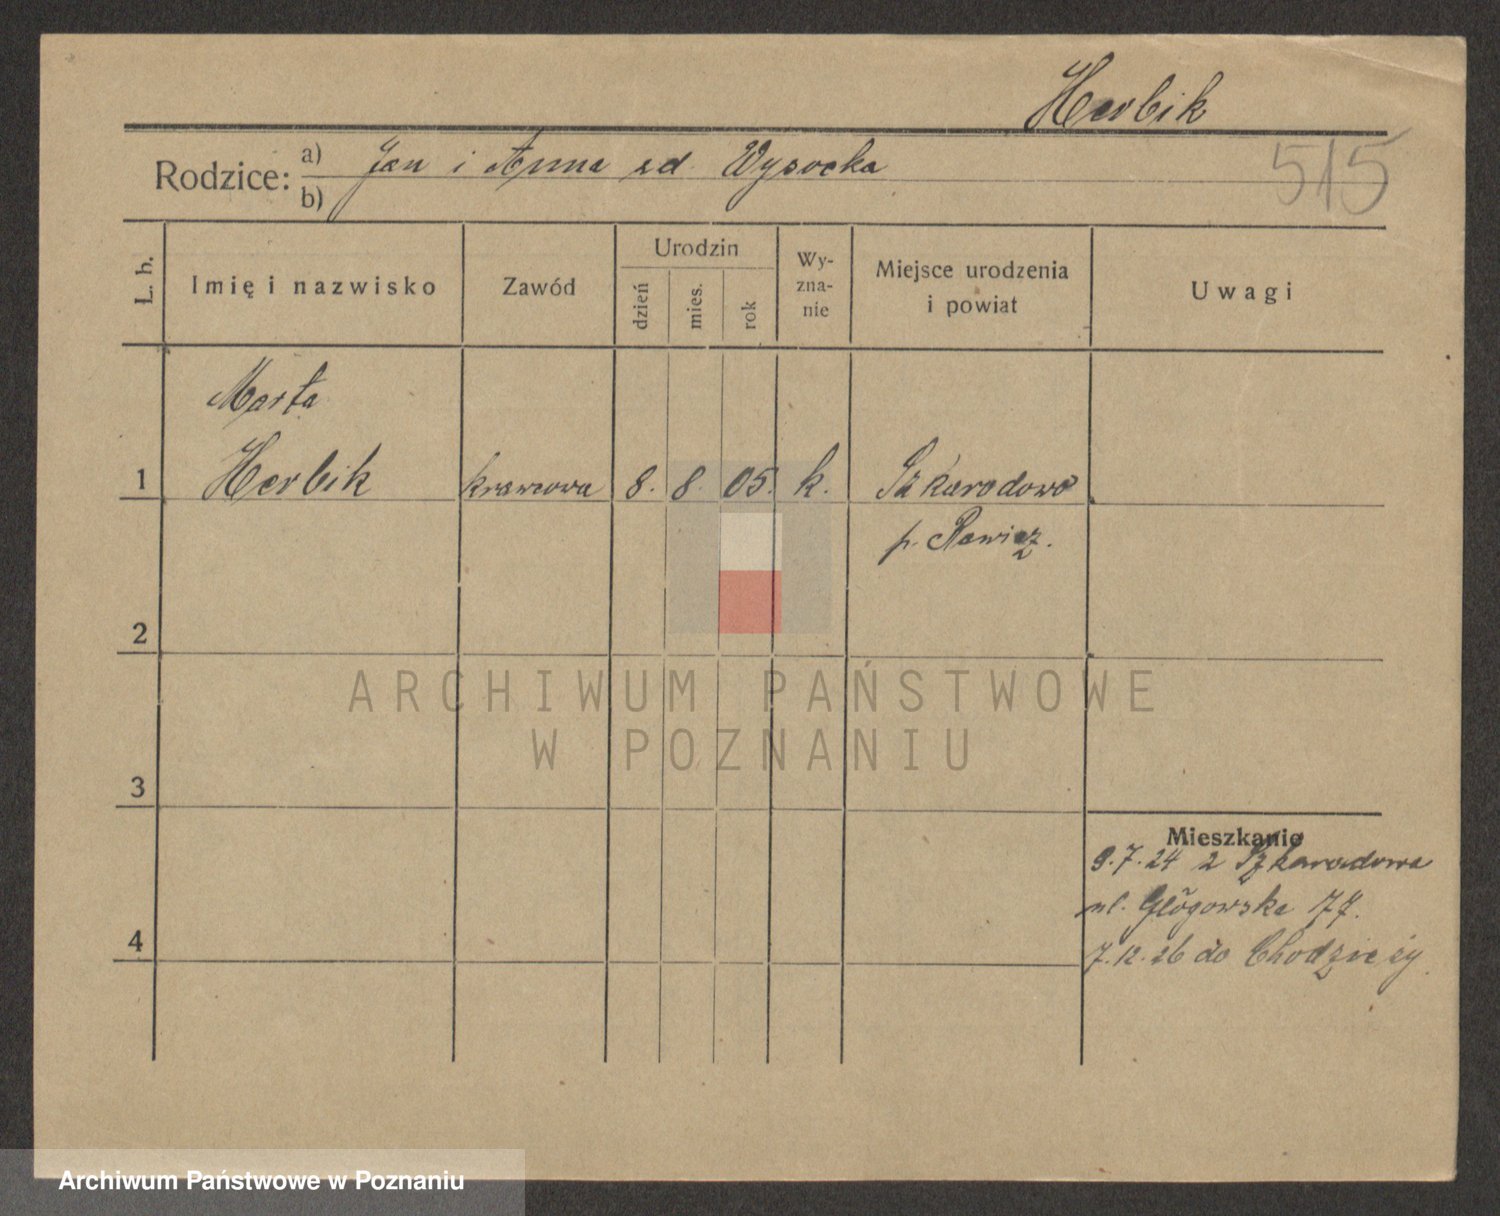 Herbik
Rodzice: a) Jan i Anna zd. Wysocka
b)
515
L. b.
Imię i nazwisko
Zawód
Urodzin
dzień
mies.
rok
Wy-
zna-
nie
Miejsce urodzenia
i powiat
Uwagi
Marta
1 Herbik krawcowa 8. 8. 05. k. Szkaradowo
p. Rawicz.
2
ARCHIWUM PAŃSTWOWE
W POZNANIU
3
Mieszkanie
9.7.24 z Szkaradowa
ul. Głogowska 77.
4
7.12.26 do Chodzieży
Archiwum Państwowe w Poznaniu